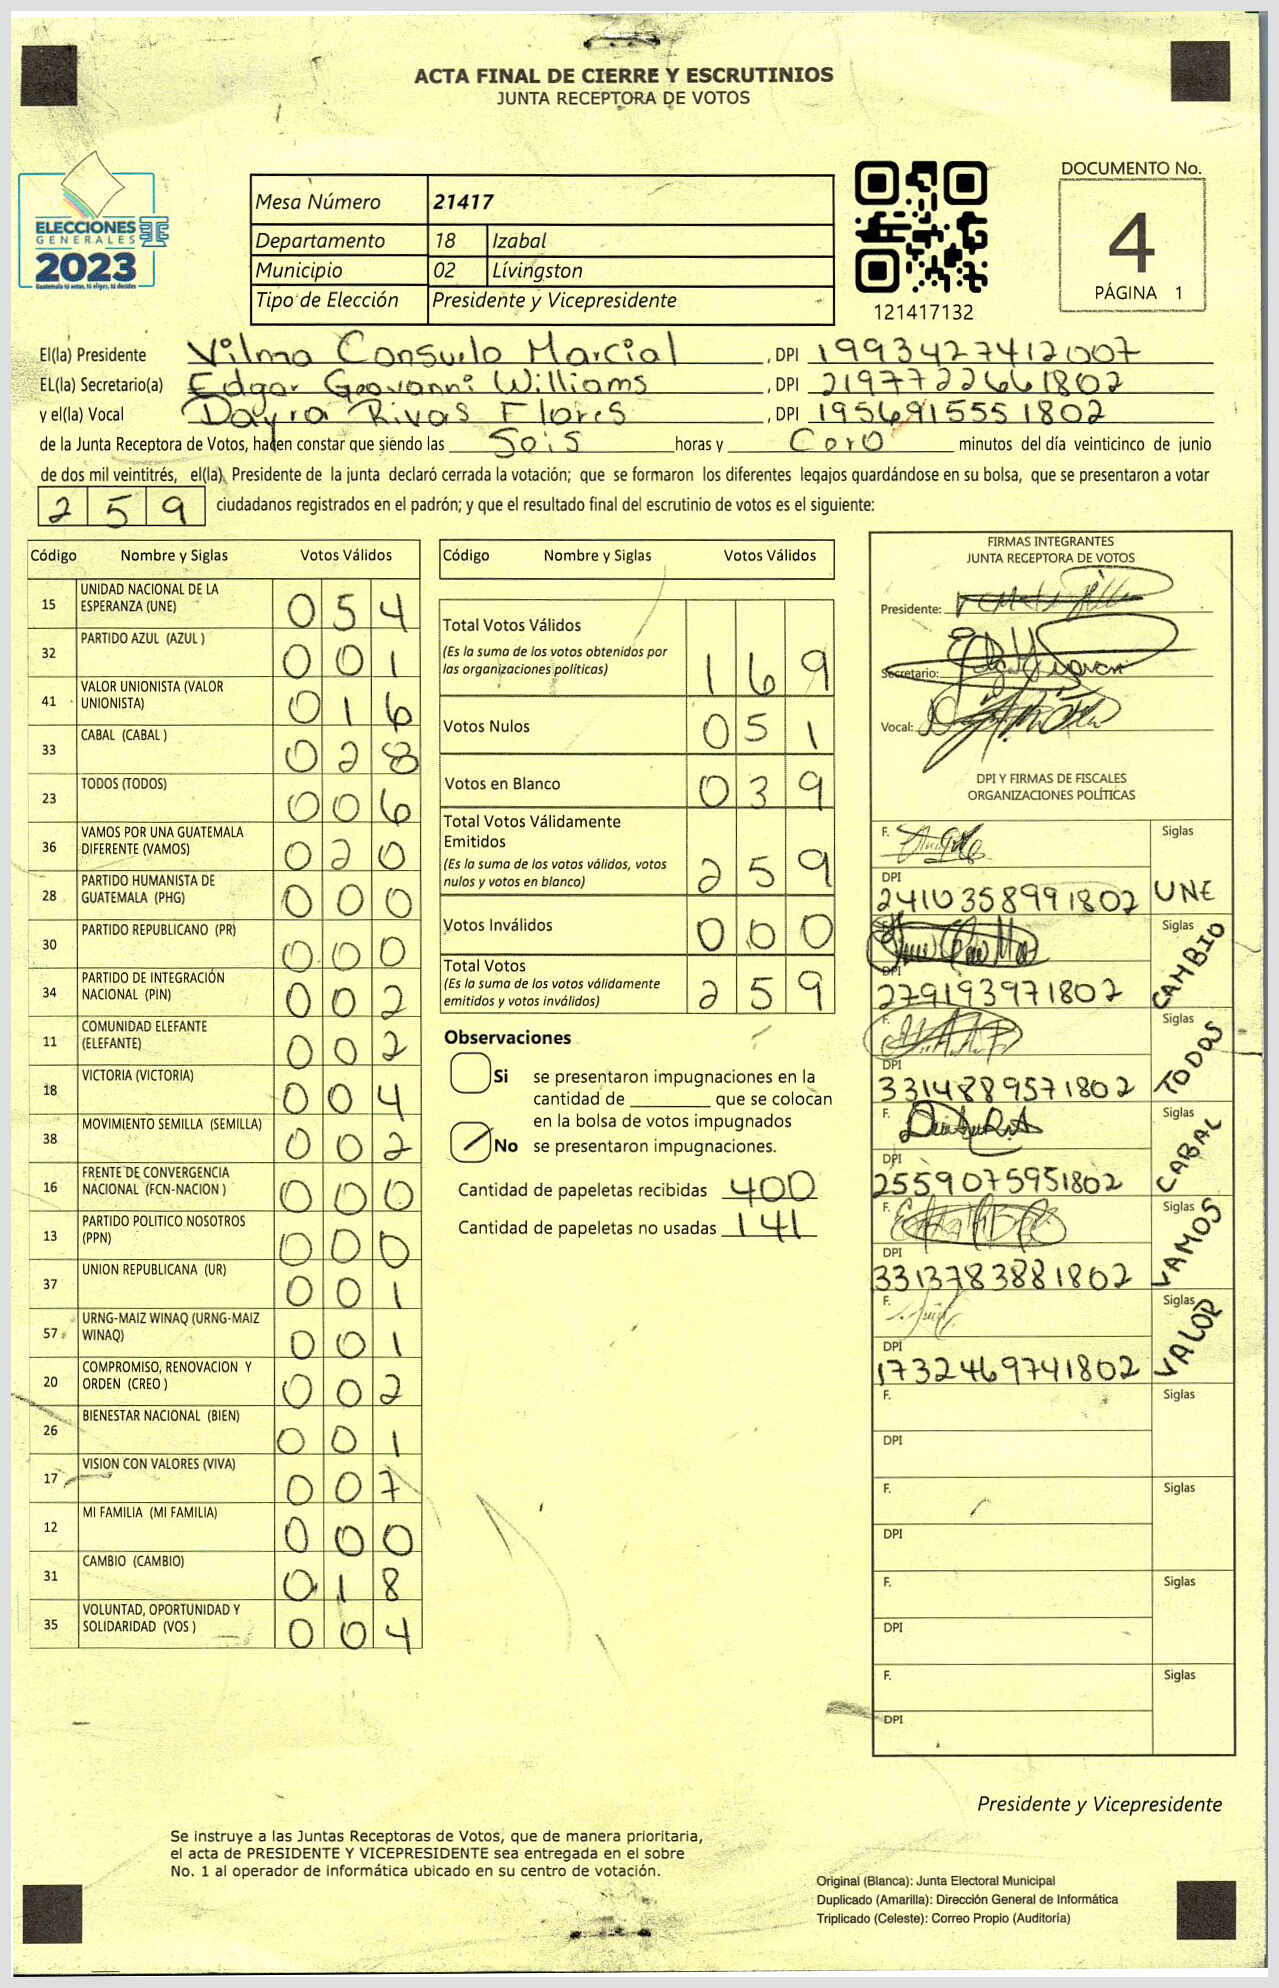 ACTA FINAL DE CIERRE Y ESCRUTINIOS
JUNTA RECEPTORA DE VOTOS
ELECCIONES
GENERALES
2023
Guatemala tú votas, tú eliges, tú decides
Mesa Número 21417
Departamento 18 Izabal
Municipio 02 Lívingston
Tipo de Elección Presidente y Vicepresidente
121417132
DOCUMENTO No.
4
PÁGINA 1
El(la) Presidente Vilma Consuelo Marcial , DPI 1993427412007
EL(la) Secretario(a) Edgar Geovanni Williams , DPI 2197722661802
y el(la) Vocal Dayra Rivas Flores , DPI 1956915551802
de la Junta Receptora de Votos, hacen constar que siendo las Seis horas y Cero minutos del día veinticinco de junio
de dos mil veintitrés, el(la) Presidente de la junta declaró cerrada la votación; que se formaron los diferentes legajos quardándose en su bolsa, que se presentaron a votar
259 ciudadanos registrados en el padrón; y que el resultado final del escrutinio de votos es el siguiente:
Código Nombre y Siglas Votos Válidos
15 UNIDAD NACIONAL DE LA ESPERANZA (UNE) 054
32 PARTIDO AZUL (AZUL ) 001
41 VALOR UNIONISTA (VALOR UNIONISTA) 016
33 CABAL (CABAL ) 028
23 TODOS (TODOS) 006
36 VAMOS POR UNA GUATEMALA DIFERENTE (VAMOS) 020
28 PARTIDO HUMANISTA DE GUATEMALA (PHG) 000
30 PARTIDO REPUBLICANO (PR) 000
34 PARTIDO DE INTEGRACIÓN NACIONAL (PIN) 002
11 COMUNIDAD ELEFANTE (ELEFANTE) 002
18 VICTORIA (VICTORIA) 004
38 MOVIMIENTO SEMILLA (SEMILLA) 002
16 FRENTE DE CONVERGENCIA NACIONAL (FCN-NACION ) 000
13 PARTIDO POLITICO NOSOTROS (PPN) 000
37 UNION REPUBLICANA (UR) 001
57 URNG-MAIZ WINAQ (URNG-MAIZ WINAQ) 001
20 COMPROMISO, RENOVACION Y ORDEN (CREO ) 002
26 BIENESTAR NACIONAL (BIEN) 001
17 VISION CON VALORES (VIVA) 007
12 MI FAMILIA (MI FAMILIA) 000
31 CAMBIO (CAMBIO) 018
35 VOLUNTAD, OPORTUNIDAD Y SOLIDARIDAD (VOS ) 004
Código Nombre y Siglas Votos Válidos
Total Votos Válidos 169
(Es la suma de los votos obtenidos por
las organizaciones políticas)
Votos Nulos 051
Votos en Blanco 039
Total Votos Válidamente
Emitidos 259
(Es la suma de los votos válidos, votos
nulos y votos en blanco)
Votos Inválidos 000
Total Votos 259
(Es la suma de los votos válidamente
emitidos y votos inválidos)
Observaciones
Si se presentaron impugnaciones en la
cantidad de ________ que se colocan
en la bolsa de votos impugnados
No se presentaron impugnaciones.
Cantidad de papeletas recibidas 400
Cantidad de papeletas no usadas 141
FIRMAS INTEGRANTES
JUNTA RECEPTORA DE VOTOS
Presidente:
Secretario:
Vocal:
DPI Y FIRMAS DE FISCALES
ORGANIZACIONES POLÍTICAS
F. Siglas
DPI
2410358991802 UNE
F. Siglas
DPI
279193971802 CAMBIO
F. Siglas
DPI
3314889571802 TODOS
F. Siglas
DPI
2559075951802 CABAL
F. Siglas
DPI
3313783881802 VAMOS
F. Siglas
DPI
1732469741802 VALOR
F. Siglas
DPI
F. Siglas
DPI
F. Siglas
DPI
F. Siglas
DPI
Presidente y Vicepresidente
Se instruye a las Juntas Receptoras de Votos, que de manera prioritaria,
el acta de PRESIDENTE Y VICEPRESIDENTE sea entregada en el sobre
No. 1 al operador de informática ubicado en su centro de votación.
Original (Blanca): Junta Electoral Municipal
Duplicado (Amarilla): Dirección General de Informática
Triplicado (Celeste): Correo Propio (Auditoría)